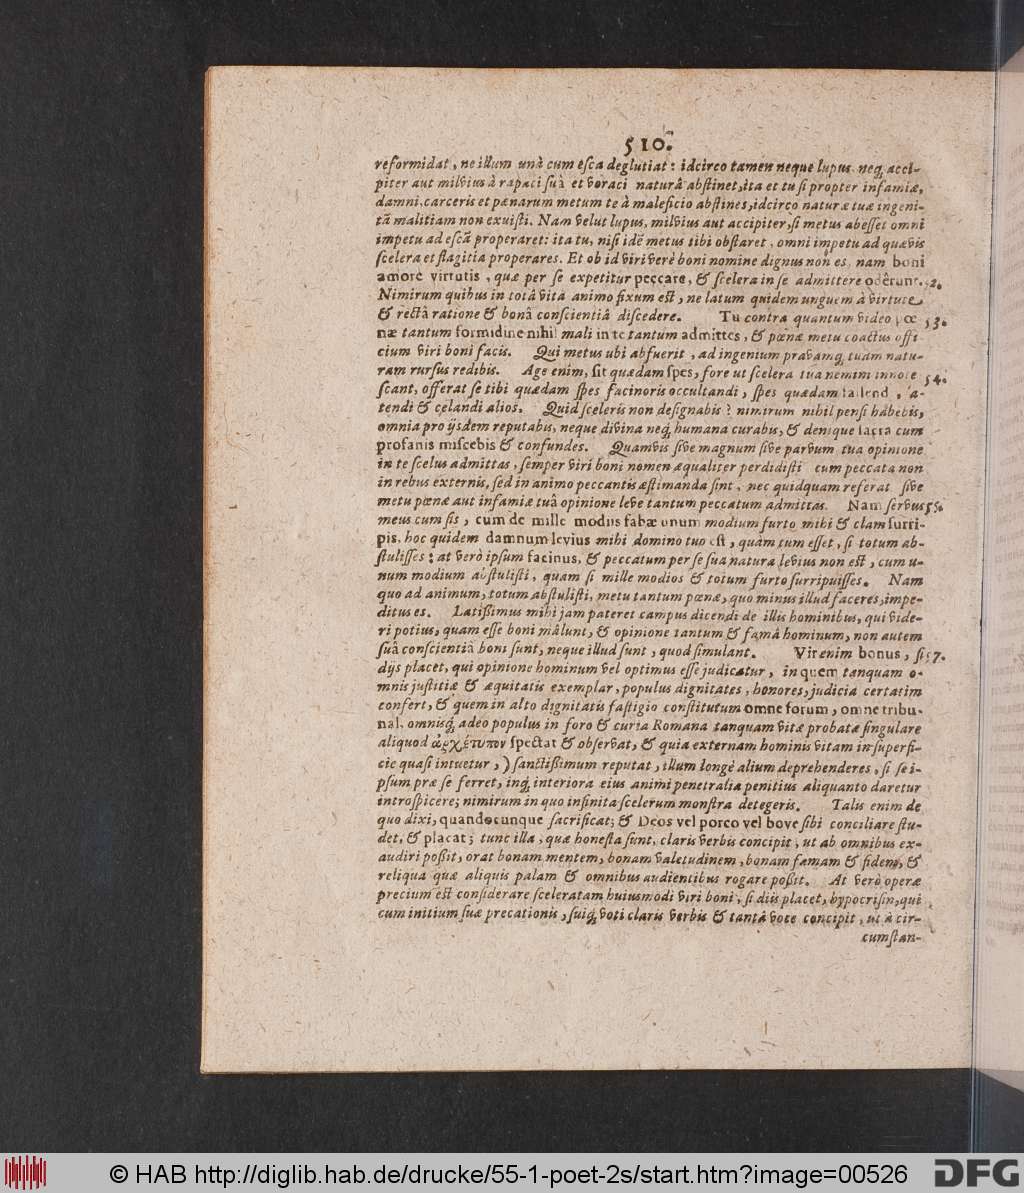 510.
reformidat, ne illum unà cum esca deglutiat: idcirco tamen neque lupus neq; acci-
piter aut milvius à rapaci suâ et voraci naturâ abstinet, ita et tu si propter infamiæ,
damni, carceris et pœnarum metum te à maleficio abstines, idcirco naturæ tuæ ingeni-
tã malitiam non exuisti. Nam velut lupus, milvius aut accipiter, si metus abesset omni
impetu ad escã properaret: ita tu, nisi idẽ metus tibi obstaret, omni impetu ad quævis
scelera et flagitia properares. Et ob id viri verè boni nomine dignus non es, nam boni
amore virtutis, quæ per se expetitur peccare, & scelera in se admittere odêrunt. 52.
Nimirum quibus in totâ vita animo fixum est, ne latum quidem unguem à virtute
& rectâ ratione & bonâ conscientiâ discedere. Tu contra quantum video pœ 53.
næ tantum formidine nihil mali in te tantum admittes, & pœnæ metu coactus offi
cium viri boni facis. Qui metus ubi abfuerit, ad ingenium pravamq; tuam natu-
ram rursus redibis. Age enim, sit quædam spes, fore ut scelera tua nemini innote 54.
scant, offerat se tibi quædam spes facinoris occultandi, spes quædam
tendi & celandi alios. Quid sceleris non designabis? nimirum nihil pensi habebis,
omnia pro ijsdem reputabis, neque divina neq; humana curabis, & denique sacra cum
profanis miscebis & confundes. Quamvis sive magnum sive parvum tua opinione
in te scelus admittas, semper viri boni nomen æqualiter perdidisti cum peccata non
in rebus externis, sed in animo peccantis æstimanda sint, nec quidquam referat sive
metu pœnæ aut infamiæ tuâ opinione leve tantum peccatum admittas. Nam servus 55.
meus cum sis, cum de mille modiis fabæ unum modium furto mihi & clam surri-
pis, hoc quidem damnum levius mihi domino tuo est, quàm tum esset, si totum ab-
stulisses: at verò ipsum facinus, & peccatum per se sua natura levius non est, cum u-
num modium abstulisti, quam si mille modios & totum furto surripuisses. Nam
quo ad animum, totum abstulisti, metu tantum pœnæ, quo minus illud faceres, impe-
ditus es. Latißimus mihi jam pateret campus dicendi de illis hominibus, qui vide-
ri potius, quam esse boni mâlunt, & opinione tantum & famâ hominum, non autem
suâ conscientiâ boni sunt, neque illud sunt, quod simulant. Vir enim bonus, si 57.
dijs placet, qui opinione hominum vel optimus esse judicatur, in quem tanquam o-
mnis justitiæ & æquitatis exemplar, populus dignitates, honores, judicia certatim
confert, & quem in alto dignitatis fastigio constitutum omne forum, omne tribu-
nal, omnisq; adeo populus in foro & curia Romana tanquam vitæ probatæ singulare
aliquod ἀρχέτυπον spectat & observat, & quia externam hominis vitam in superfi-
cie quasi intuetur,) sanctißimum reputat, illum longè alium deprehenderes, si se i-
psum præ se ferret, inq; interiora eius animi penetralia penitius aliquanto daretur
introspicere; nimirum in quo infinita scelerum monstra detegeris. Talis enim de
quo dixi, quandocunque sacrificat; & Deos vel porco vel bove sibi conciliare stu-
det, & placat; tunc illa, quæ honesta sunt, claris verbis concipit, ut ab omnibus ex-
audiri poßit, orat bonam mentem, bonam valetudinem, bonam famam & fidem, &
reliqua quæ aliquis palam & omnibus audientibus rogare poßit. At verò operæ
precium est considerare sceleratam huiusmodi viri boni, si diis placet, hypocrisin, qui
cum initium suæ precationis, suiq; voti claris verbis & tantâ voce concipit, ut à cir-
cumstan-
© HAB http://diglib.hab.de/drucke/55-1-poet-2s/start.htm?image=00526
DFG